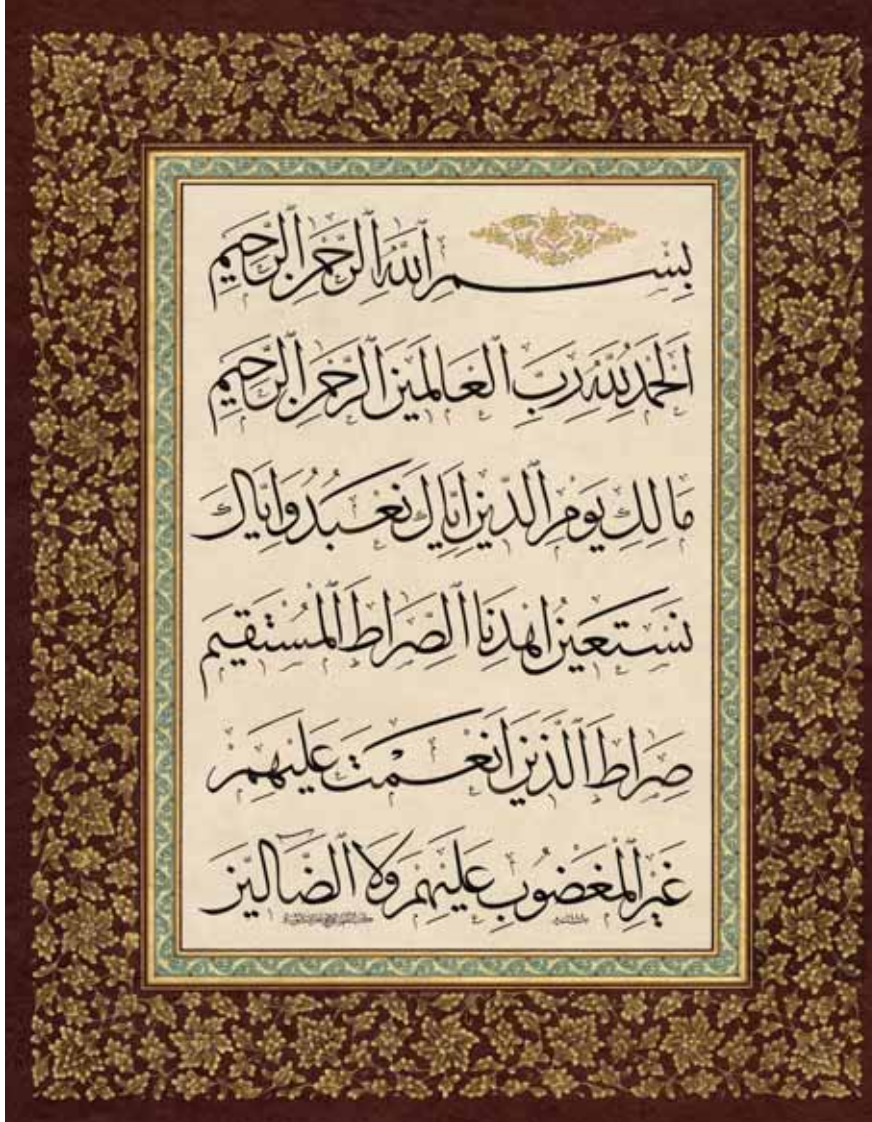 بِسْمِ ٱللَّهِ ٱلرَّحْمٰنِ ٱلرَّحِيمِ
اَلْحَمْدُ لِلَّهِ رَبِّ ٱلْعَالَمِينَ ٱلرَّحْمٰنِ ٱلرَّحِيمِ
مَالِكِ يَوْمِ ٱلدِّينِ اِيَّاكَ نَعْبُدُ وَاِيَّاكَ
نَسْتَعِينُ اِهْدِنَا ٱلصِّرَاطَ ٱلْمُسْتَقِيمَ
صِرَاطَ ٱلَّذِينَ اَنْعَمْتَ عَلَيْهِمْ
غَيْرِ ٱلْمَغْضُوبِ عَلَيْهِمْ وَلَا ٱلضَّالِّينَ